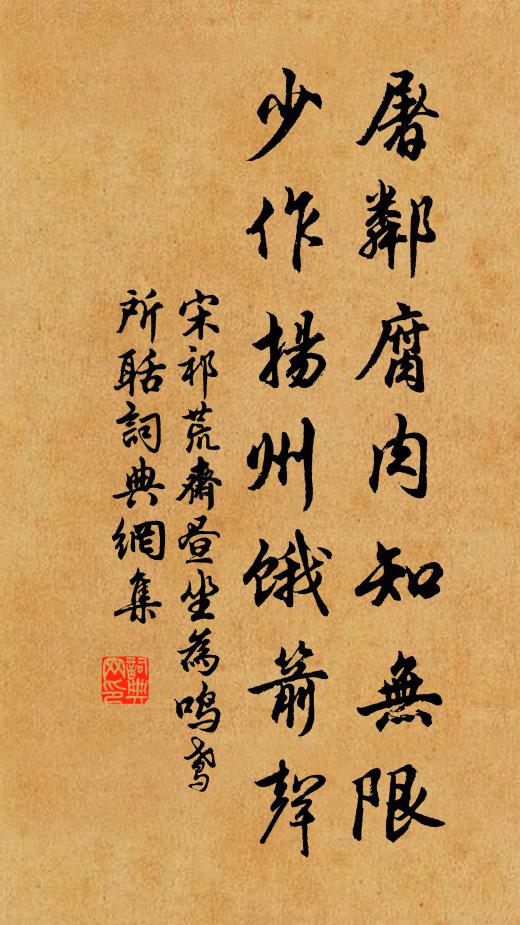 屠鄰腐肉知無限
少作揚州餓箭聲
宋祁荒齋晝坐為鳴鳶
所聒詞典網集
詞典
网印